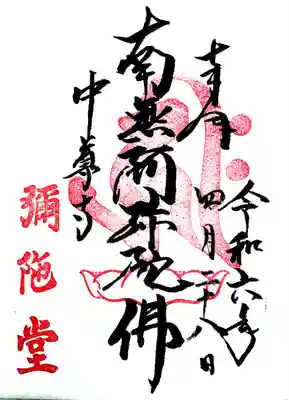 奉拝
令和六年
四月二十八日
南無阿弥陀佛
中尊寺
彌陀堂